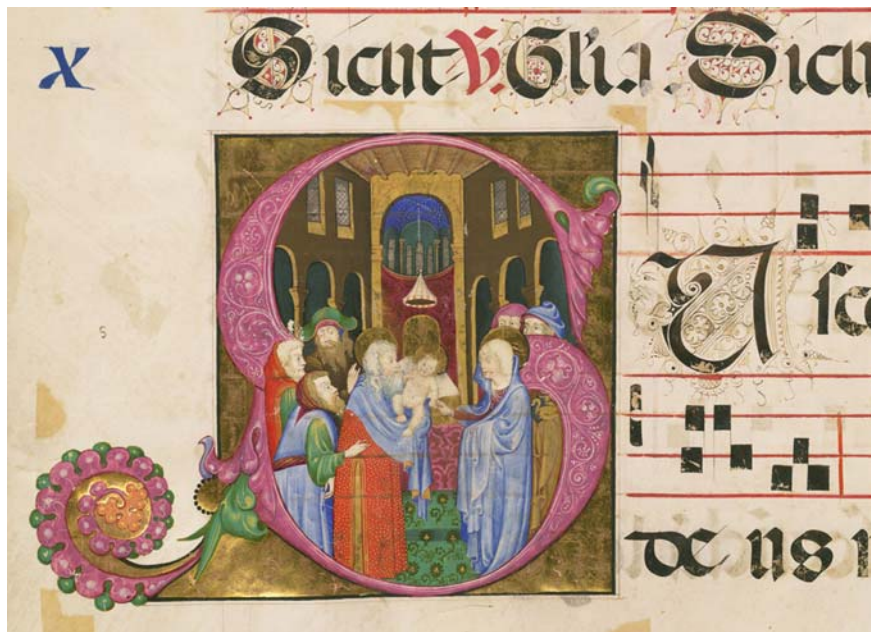 x
Sicut ℣. Gl'ia. Sicu
5
SUsc
de us